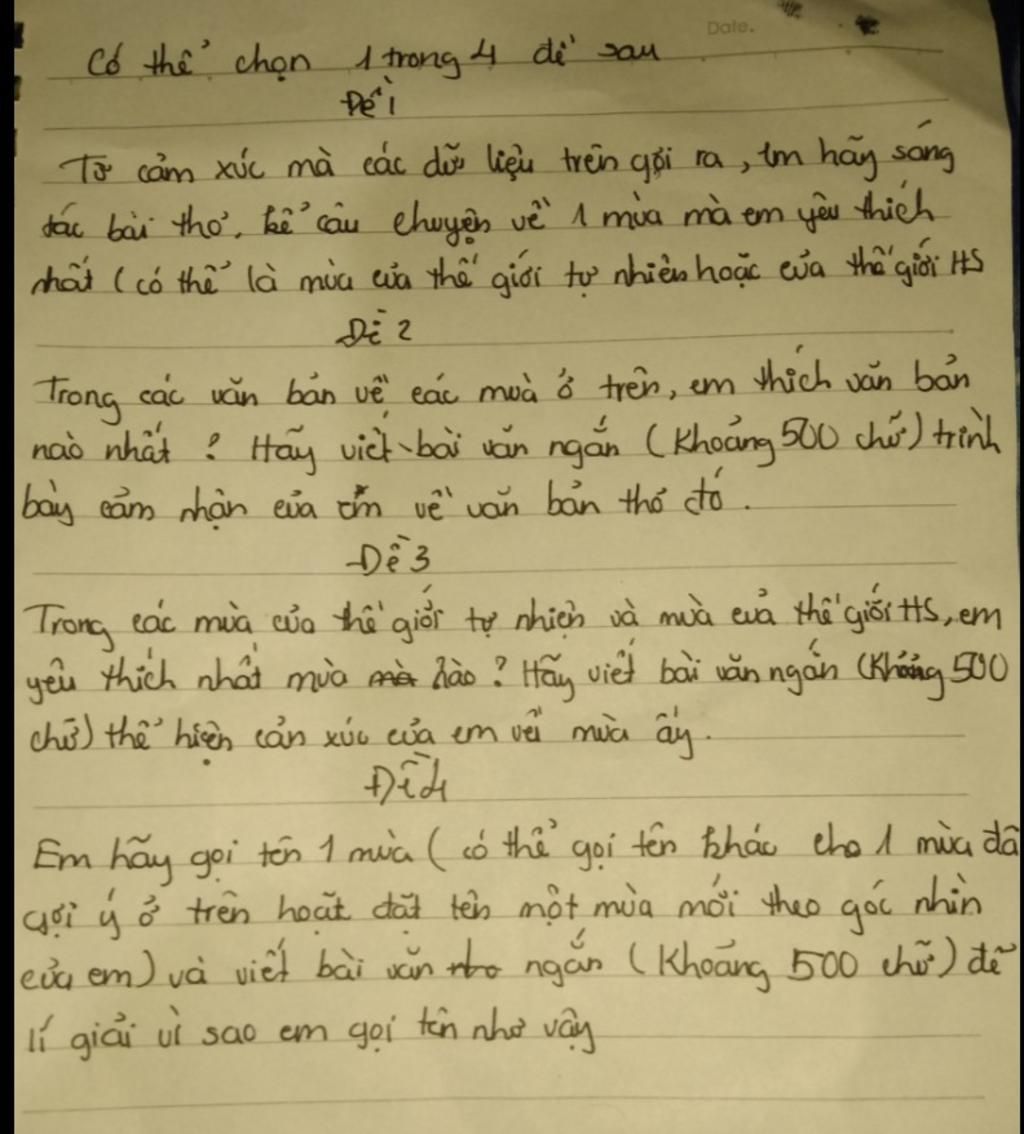 Date.
Có thể chọn 1 trong 4 đề sau
Đề 1
Từ cảm xúc mà các dữ liệu trên gợi ra, em hãy sáng
tác bài thơ, kể câu chuyện về 1 mùa mà em yêu thích
nhất (có thể là mùa của thế giới tự nhiên hoặc của thế giới HS
Đề 2
Trong các văn bản về các muà ở trên, em thích văn bản
nào nhất ? Hãy viết bài văn ngắn (Khoảng 500 chữ) trình
bày cảm nhận của em về văn bản thơ đó.
Đề 3
Trong các mùa của thế giới tự nhiên và mùa của thế giới HS, em
yêu thích nhất mùa nào? Hãy viết bài văn ngắn (Khoảng 500
chữ) thể hiện cản xúc của em về mùa ấy.
Đề 4
Em hãy gọi tên 1 mùa ( có thể gọi tên khác cho 1 mùa đã
gợi ý ở trên hoặt đặt tên một mùa mới theo góc nhìn
của em) và viết bài văn ngắn (Khoảng 500 chữ) để
lí giải vì sao em gọi tên như vậy